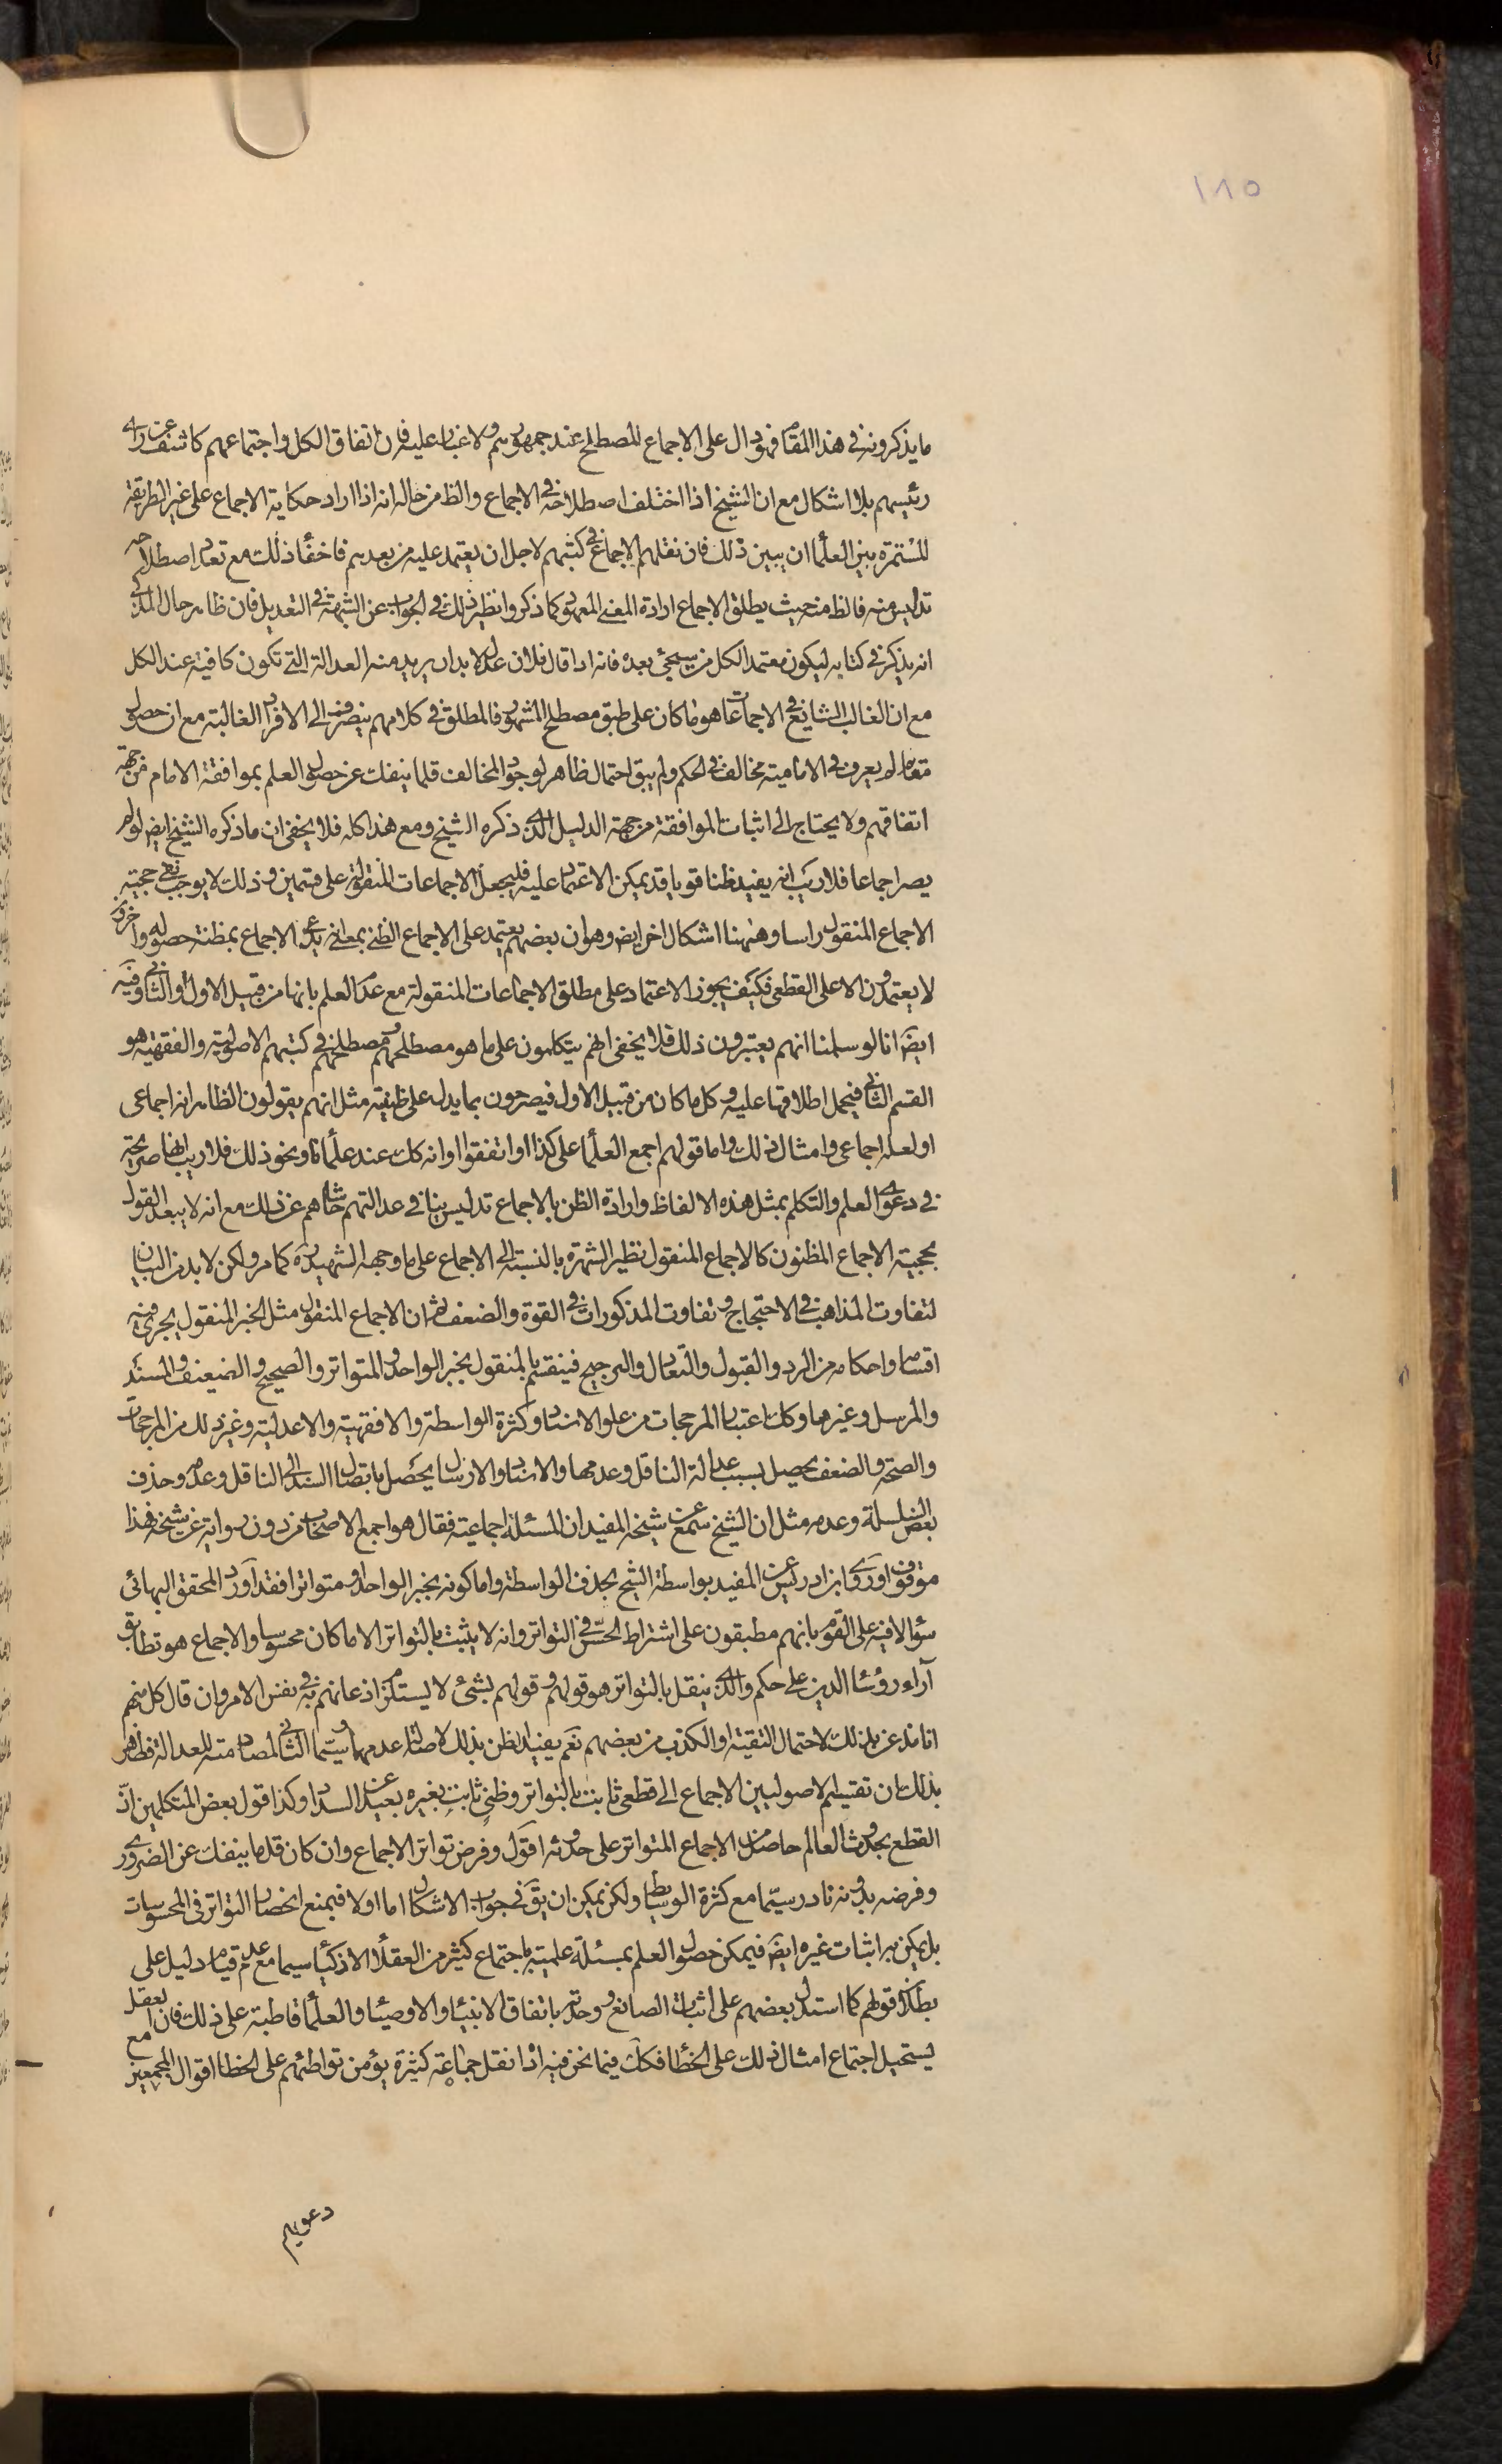 ١٨٥
ما يذكرونه فى هذا المقام فهو دال على الاجماع المصطلح عند جمهورهم ولا غبار عليه فان اتفاق الكل واجتماعهم كاشف عن راى
رئيسهم بلا اشكال مع ان الشيخ اذا اختلف اصطلاحه فى الاجماع والظ من حاله انه اذا اراد حكاية الاجماع على غير الطريقة
المستمرة بين العلماء ان يبين ذلك فان نقلهم الاجماع فى كتبهم لاجل ان يعتمد عليه من بعدهم فاخفاء ذلك مع تعدد اصطلاحه
تدليس منه فالظ منه حيث يطلق الاجماع ارادة المعنى المعهود كما ذكروا نظير ذلك فى الجواب عن الشبهة فى التعديل فان ظاهر حال المزكى
انه يذكر فى كتابه ليكون معتمد الكل من سيجئ بعده فانه اذا قال فلان عدل لا بد ان يريد منه العدالة التى تكون كافية عند الكل
مع ان الغالب الشايع فى الاجماعات هو ما كان على طبق مصطلح المشهور فالمطلق فى كلامهم ينصرف الى الافراد الغالبة مع ان حصول
مقام لم يعرف فى الامامية مخالف فى الحكم ولم يبق احتمال ظاهر لوجود المخالف قلما ينفك عن حصول العلم بموافقة الامام من جهة
اتفاقهم ولا يحتاج الى اثبات الموافقة من جهة الدليل الذى ذكره الشيخ ومع هذا كله فلا يخفى ان ما ذكره الشيخ ايض لو لم
يصر اجماعا فلا ريب انه يفيد ظنا قويا قد يمكن الاعتماد عليه فليجعل الاجماعات المنقولة على قسمين وذلك لا يوجب نفى حجية
الاجماع المنقول راسا وههنا اشكال اخر ايض وهو ان بعضهم يعتمد على الاجماع الظنى بمعنى انه يدعى الاجماع بمظنة حصوله واخرون
لا يعتمدون الا على القطعى فكيف يجوز الاعتماد على مطلق الاجماعات المنقولة مع عدم العلم بانها من قبيل الاول او الثانى وفيه
ايض انا لو سلمنا انهم يعتبرون ذلك فلا يخفى انهم يتكلمون على ما هو مصطلحهم ومصطلحهم فى كتبهم الاصولية والفقهية هو
القسم الثانى فيحمل اطلاقها عليه وكل ما كان من قبيل الاول فيصرحون بما يدل على ظنيته مثل انهم يقولون الظاهر انه اجماعى
او لعله اجماعى وامثال ذلك واما قولهم اجمع العلماء على كذا او اتفقوا او انه كك عند علمائنا ونحو ذلك فلا ريب انها صريحة
فى دعوى العلم والتكلم بمثل هذه الالفاظ وارادة الظن بالاجماع تدليس ينافى عدالتهم حاشاهم عن ذلك مع انه لا يبعد القول
بحجية الاجماع المظنون كالاجماع المنقول نظير الشهرة بالنسبة الى الاجماع على ما وجهه الشهيد ره كما مر ولكن لا بد من البيان
لتفاوت المذاهب فى الاحتجاج وتفاوت المذكورات فى القوة والضعف ثم ان الاجماع المنقول مثل الخبر المنقول يجرى فيه
اقسامه واحكامه من الرد والقبول والتعادل والترجيح فينقسم بالمنقول بخبر الواحد والمتواتر والصحيح والضعيف والمسند
والمرسل وغيرها وكك اعتبار المرجحات من علو الاسناد وكثرة الواسطة والافقهية والاعدلية وغير ذلك من المرجحات
والصحة والضعف يحصل بسبب عدالة الناقل وعدمها والاسناد والارسال يحصل باتصال السند الى الناقل وعدمه وحذف
بعض السلسلة وعدمه مثل ان الشيخ سمع عن شيخه المفيد ان المسئلة اجماعية فقال هو اجمع الاصحاب من دون رواية عن شيخه فهذا
موقوف او روى ابن ادريس عن المفيد بواسطة الشيخ بحذف الواسطة واما كونه بخبر الواحد او متواترا فقد اورد المحقق البهائى
سؤالا فيه على القوم بانهم مطبقون على اشتراط الحس فى التواتر وانه لا يثبت بالتواتر الا ما كان محسوسا والاجماع هو تطابق
آراء رؤسا الدين على حكم والذى ينقل بالتواتر هو قولهم وقولهم بشئ لا يستلزم اذعانهم به فى نفس الامر وان قال كل منهم
انا مذعن بذلك لاحتمال التقية او الكذب من بعضهم نعم يفيد الظن بذلك لاصالة عدمها سيما الثانى لمصادمته للعدالة فظهر
بذلك ان تقسيم الاصوليين الاجماع الى قطعى ثابت بالتواتر وظنى ثابت بغيره بعيد عن السداد وكذا قول بعض المتكلمين ان
القطع بحدوث العالم حاصل من الاجماع المتواتر على حدوثه اقول وفرض تواتر الاجماع وان كان قلما ينفك عن الضرورى
وفرضه بدونه نادر سيما مع كثرة الوسايط ولكن يمكن ان يق فى جواب الاشكال اما اولا فبمنع انحصار التواتر فى المحسوسات
بل يمكن به اثبات غيره ايض فيمكن حصول العلم بمسئلة علمية باجتماع كثير من العقلاء الاذكياء سيما مع عدم قيام دليل على
بطلان قولهم كما استدل بعضهم على اثبات الصانع ووحدته باتفاق الانبياء والاوصياء والعلماء قاطبة على ذلك فان العقل
يستحيل اجتماع امثال ذلك على الخطاء فكك فيما نحن فيه اذا نقل جماعة كثيرة يؤمن تواطئهم على الخطا اقوال المجمعين مع
دعويهم